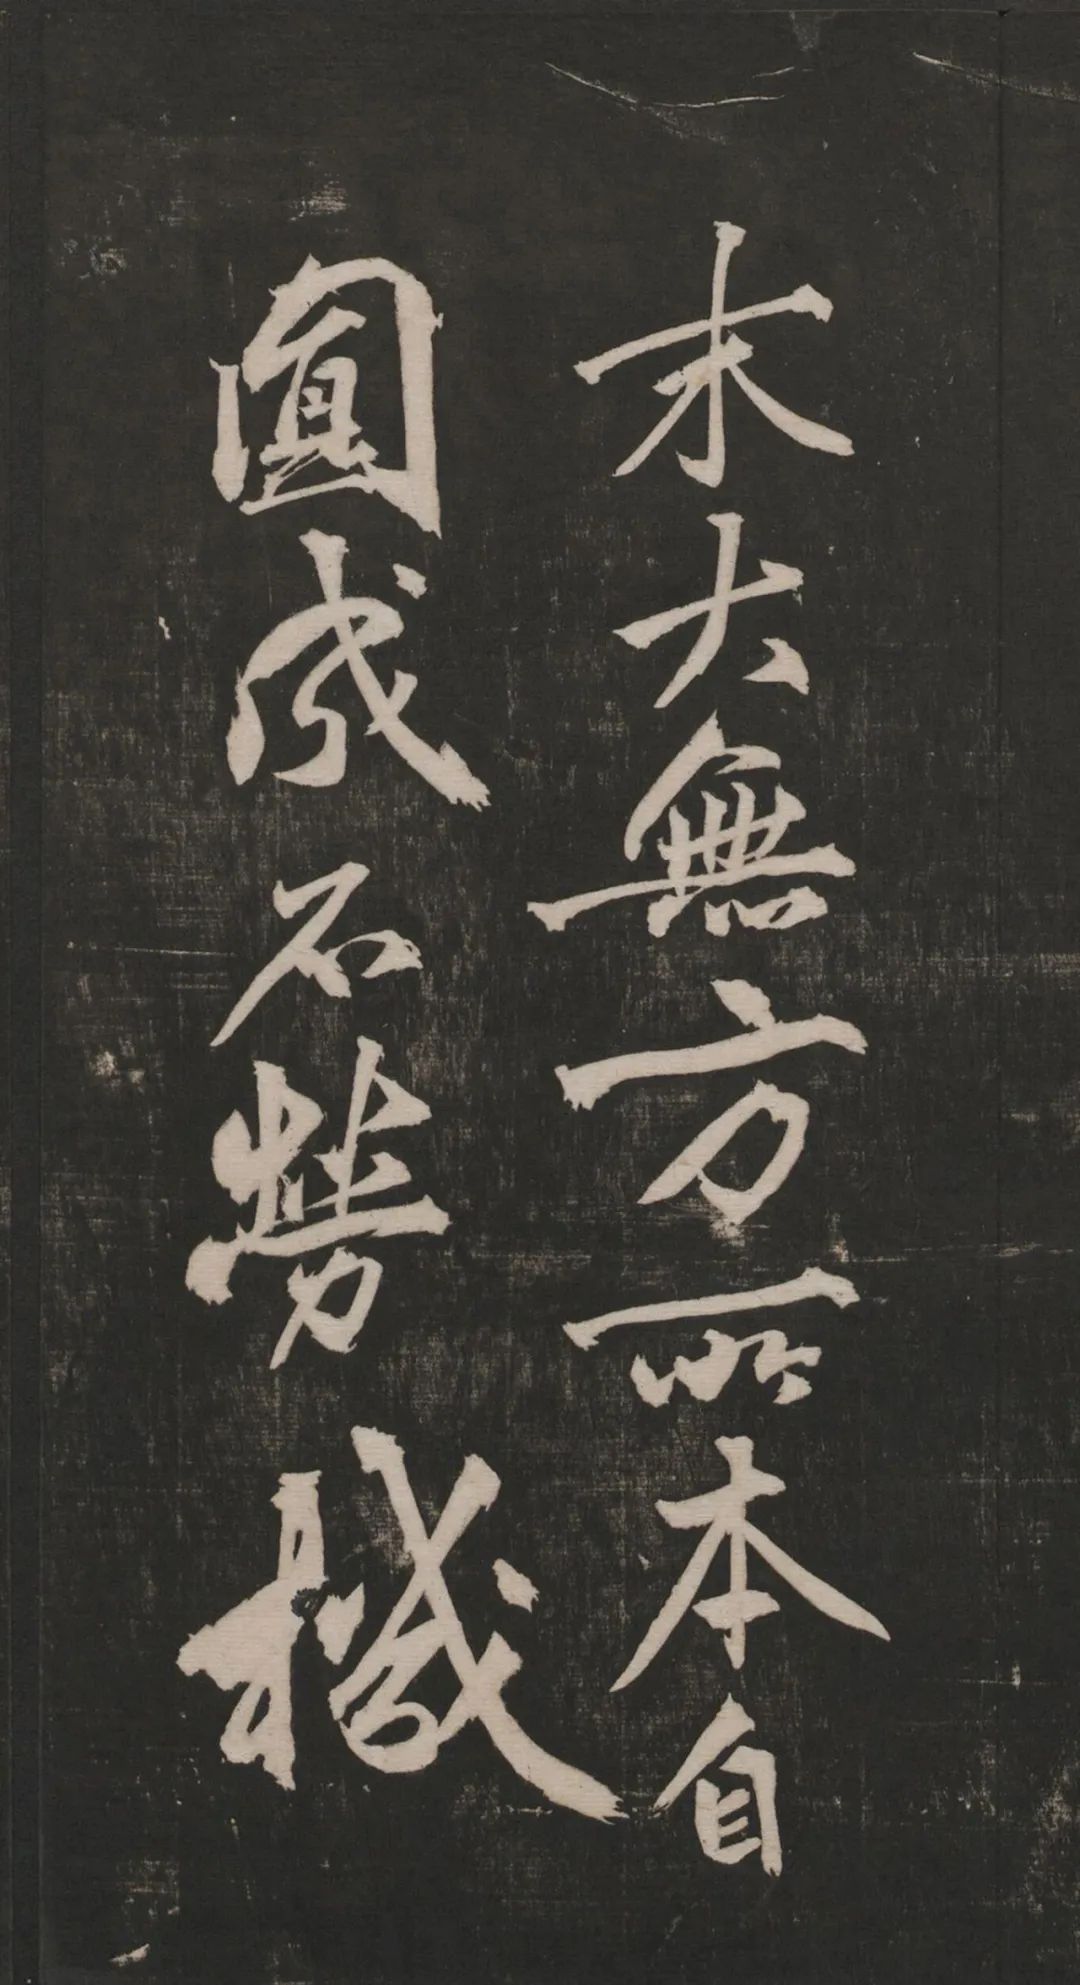 木大無方所本自
圓成不勞機